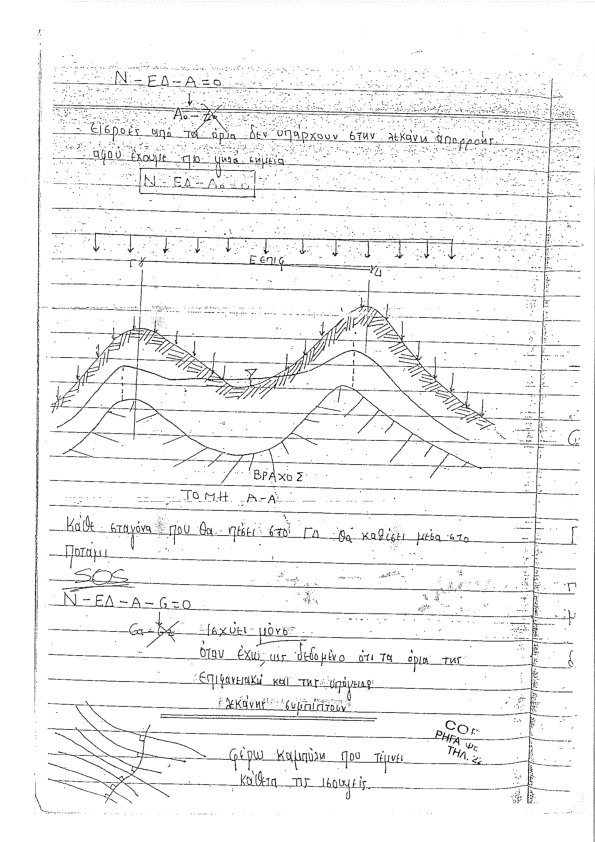 N - ΕΔ - Α = 0
Αα -
Εισροές από τα όρια δεν υπάρχουν στην λεκάνη απορροής
αφού έχουμε πιο ψηλά σημεία
N - ΕΔ - Αα = 0
Ε ΕΠΙΦ
ΒΡΑΧΟΣ
ΤΟΜΗ Α-Α
Κάθε σταγόνα που θα πέσει στο ΓΔ θα καθίσει μέσα στο
Ποτάμι
SOS
N - ΕΔ - Α - G = 0
Gα - Ισχύει μόνο
όταν έχω ως δεδομένο ότι τα όρια της
επιφανειακή και της υπόγειας
λεκάνης συμπίπτουν
Φέρω καμπύλη που τέμνει
κάθετα τις ισοϋψείς.
ΡΗΓΑ ΦΕ
ΤΗΛ. 2